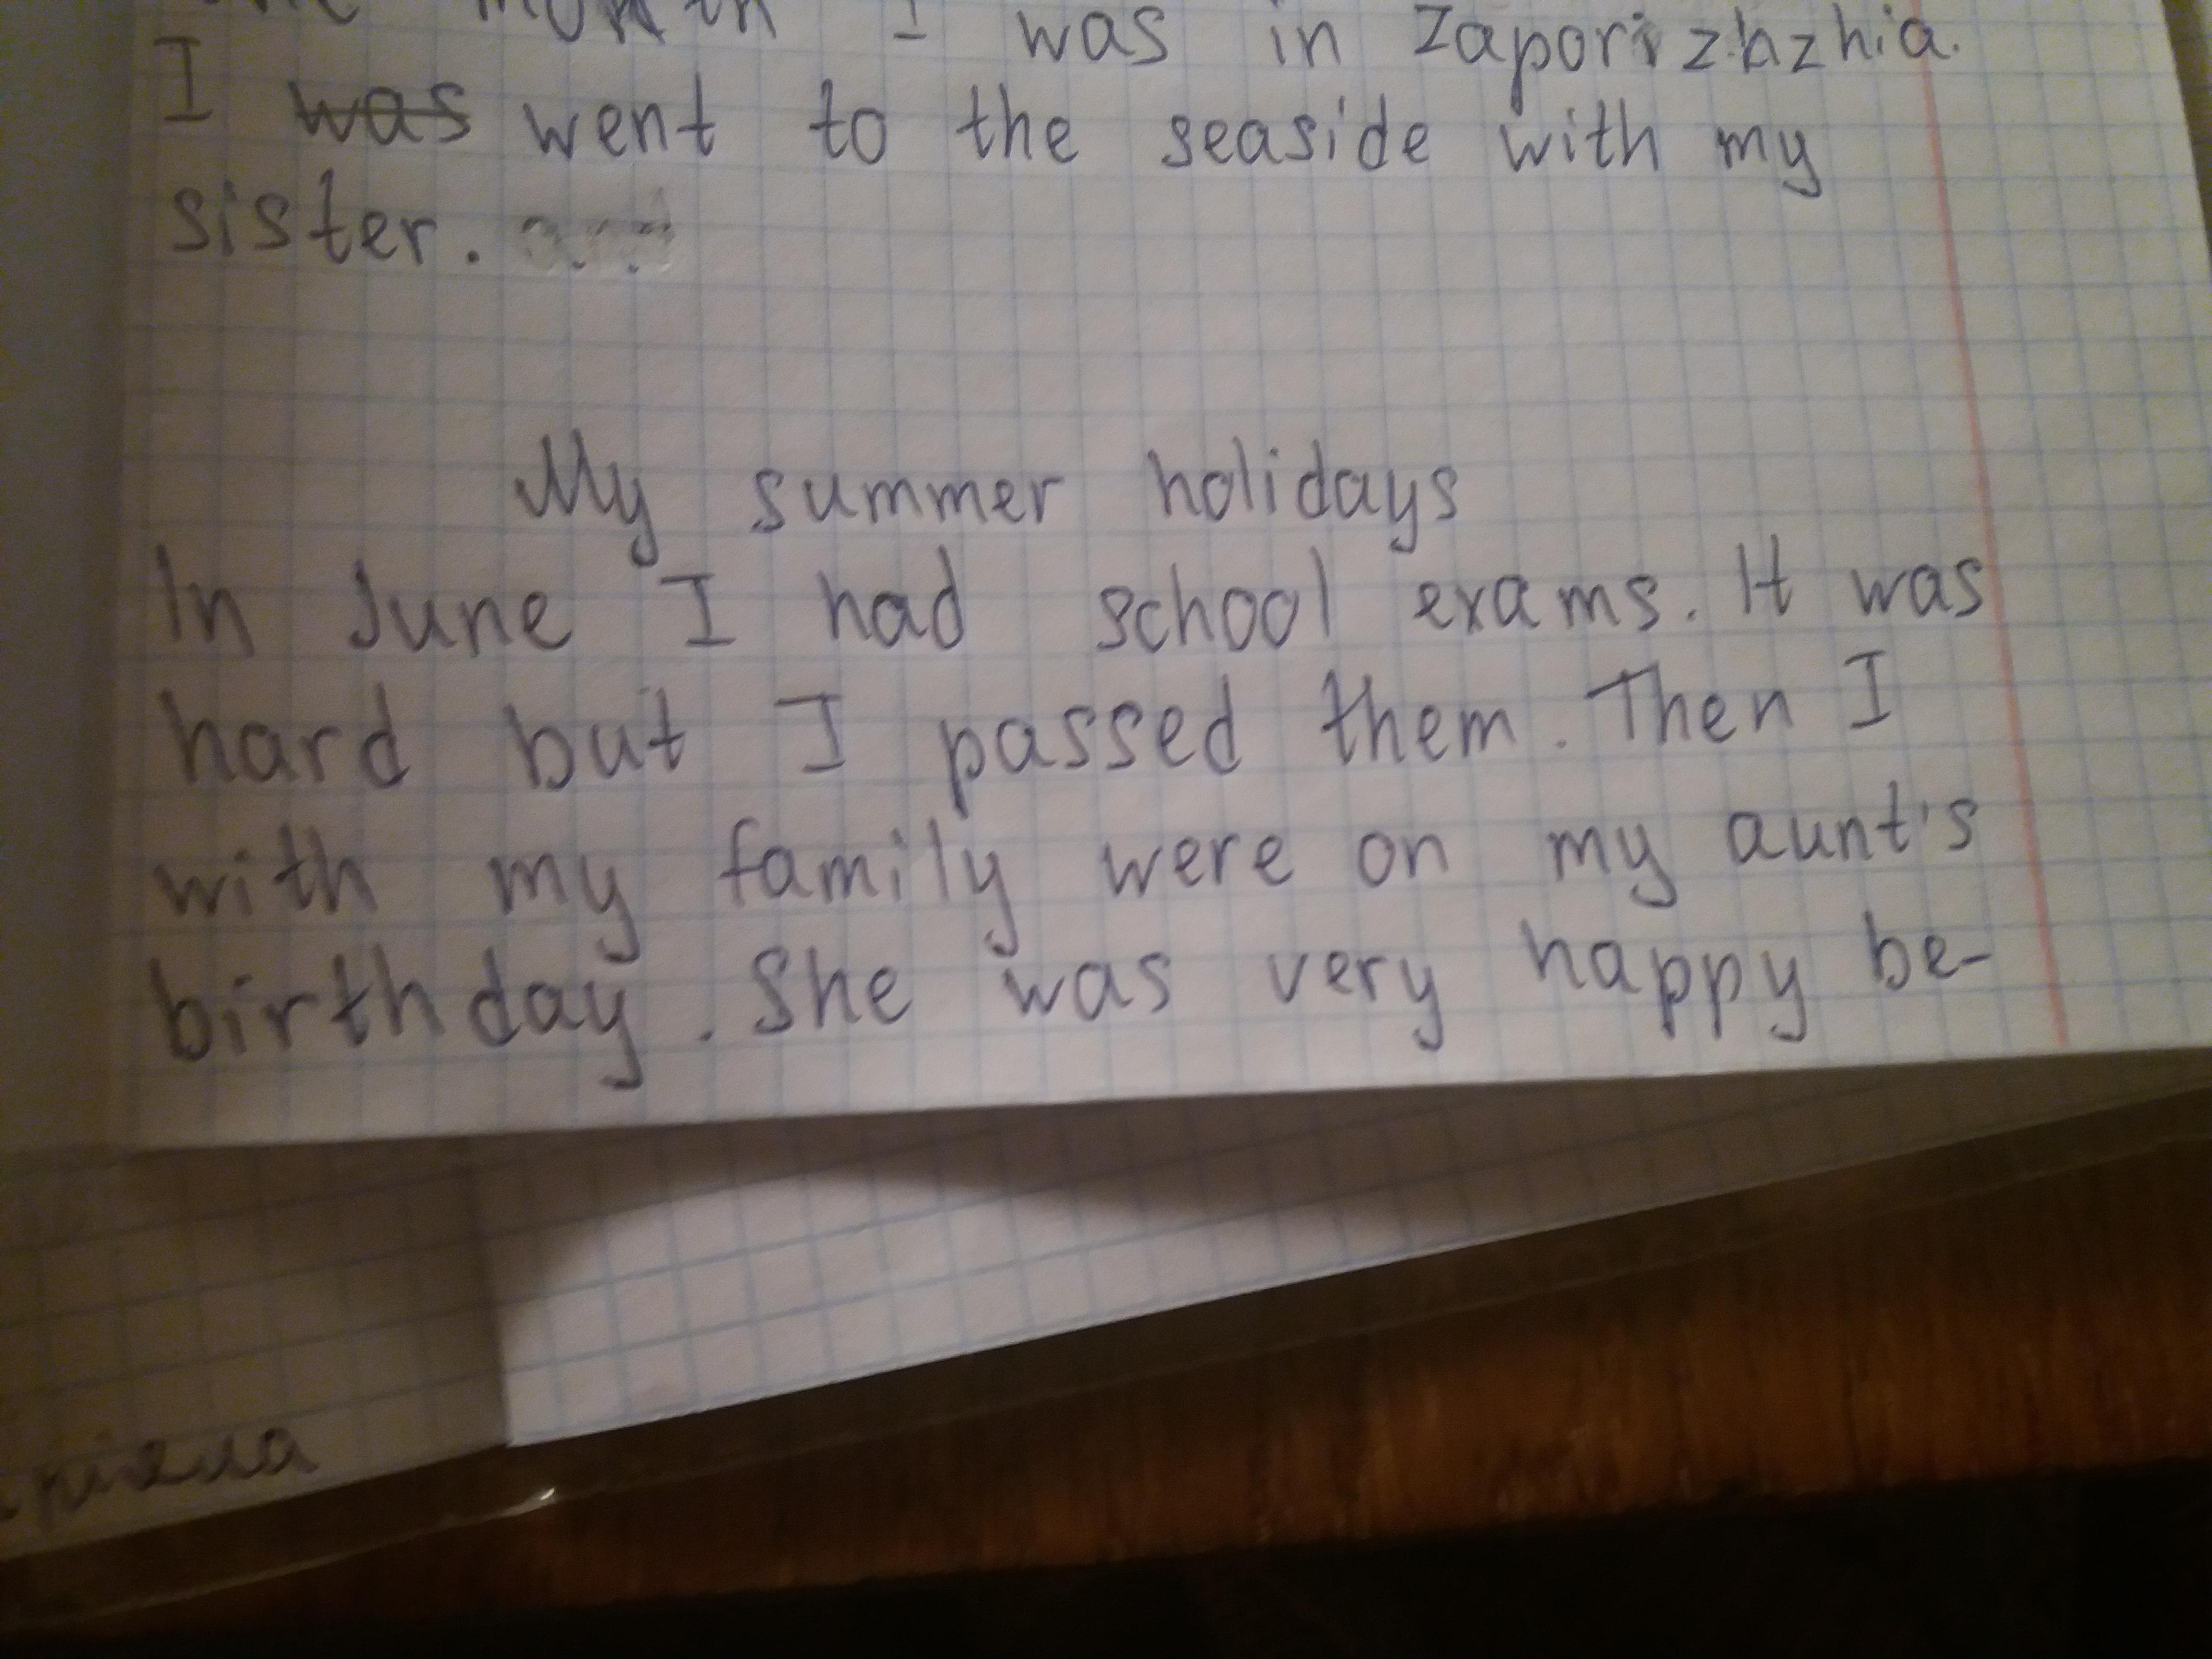 month I was in Zaporizhzhia.
I was went to the seaside with my
sister.
My summer holidays
In June I had school exams. It was
hard but I passed them. Then I
with my family were on my aunt's
birthday. She was very happy be-